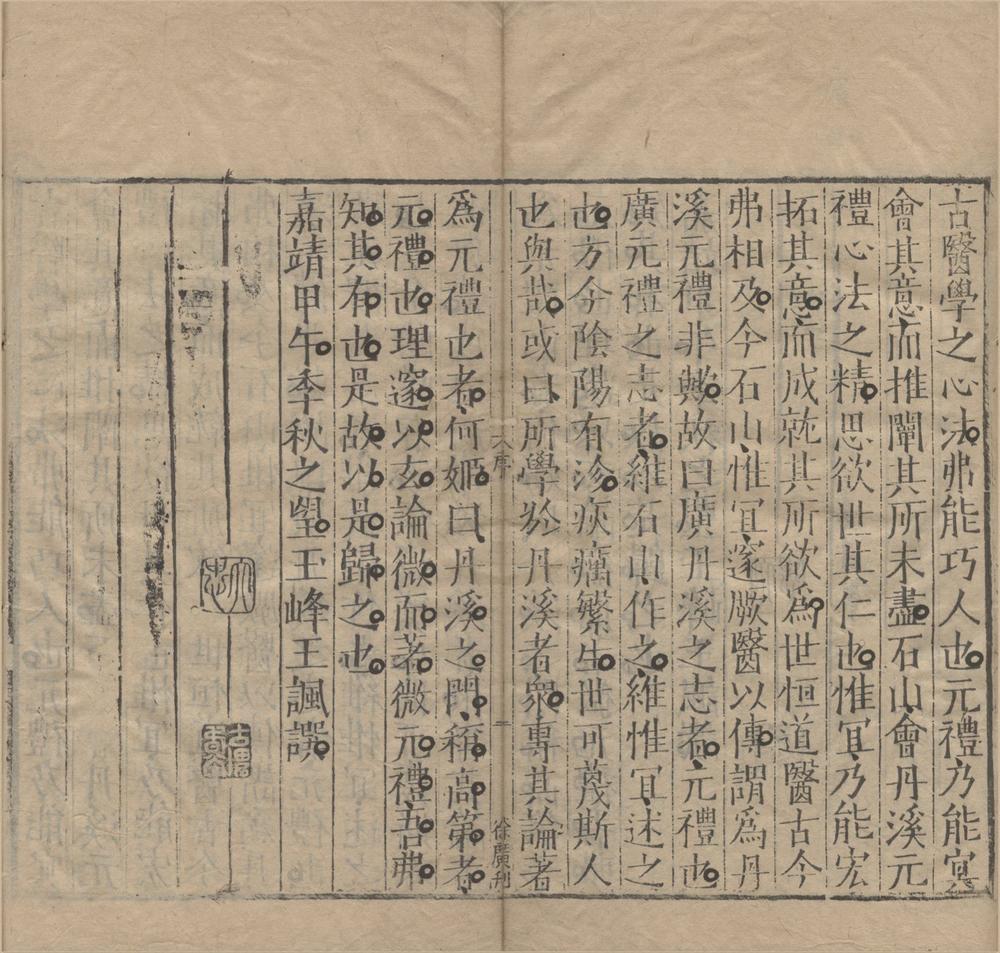 古醫學之心法弗能巧人也元禮乃能冥
會其意而推闡其所未盡石山會丹溪元
禮心法之精思欲世其仁也惟宜乃能宏
拓其意而成就其所欲為世恒道醫古今
弗相及今石山惟宜邃厥醫以傳謂為丹
溪元禮非歟故曰廣丹溪之志者元禮也
廣元禮之志者維石山作之維惟宜述之
也方今陰陽有沴疾癘繁生世可蔑斯人
也與哉或曰所學於丹溪者衆專其論著
六序
二
徐廣刊
為元禮也者何姬曰丹溪之門稱高第者
元禮也理邃以玄論微而著微元禮吾弗
知其有也是故以是歸之也
嘉靖甲午季秋之望玉峰王諷譔